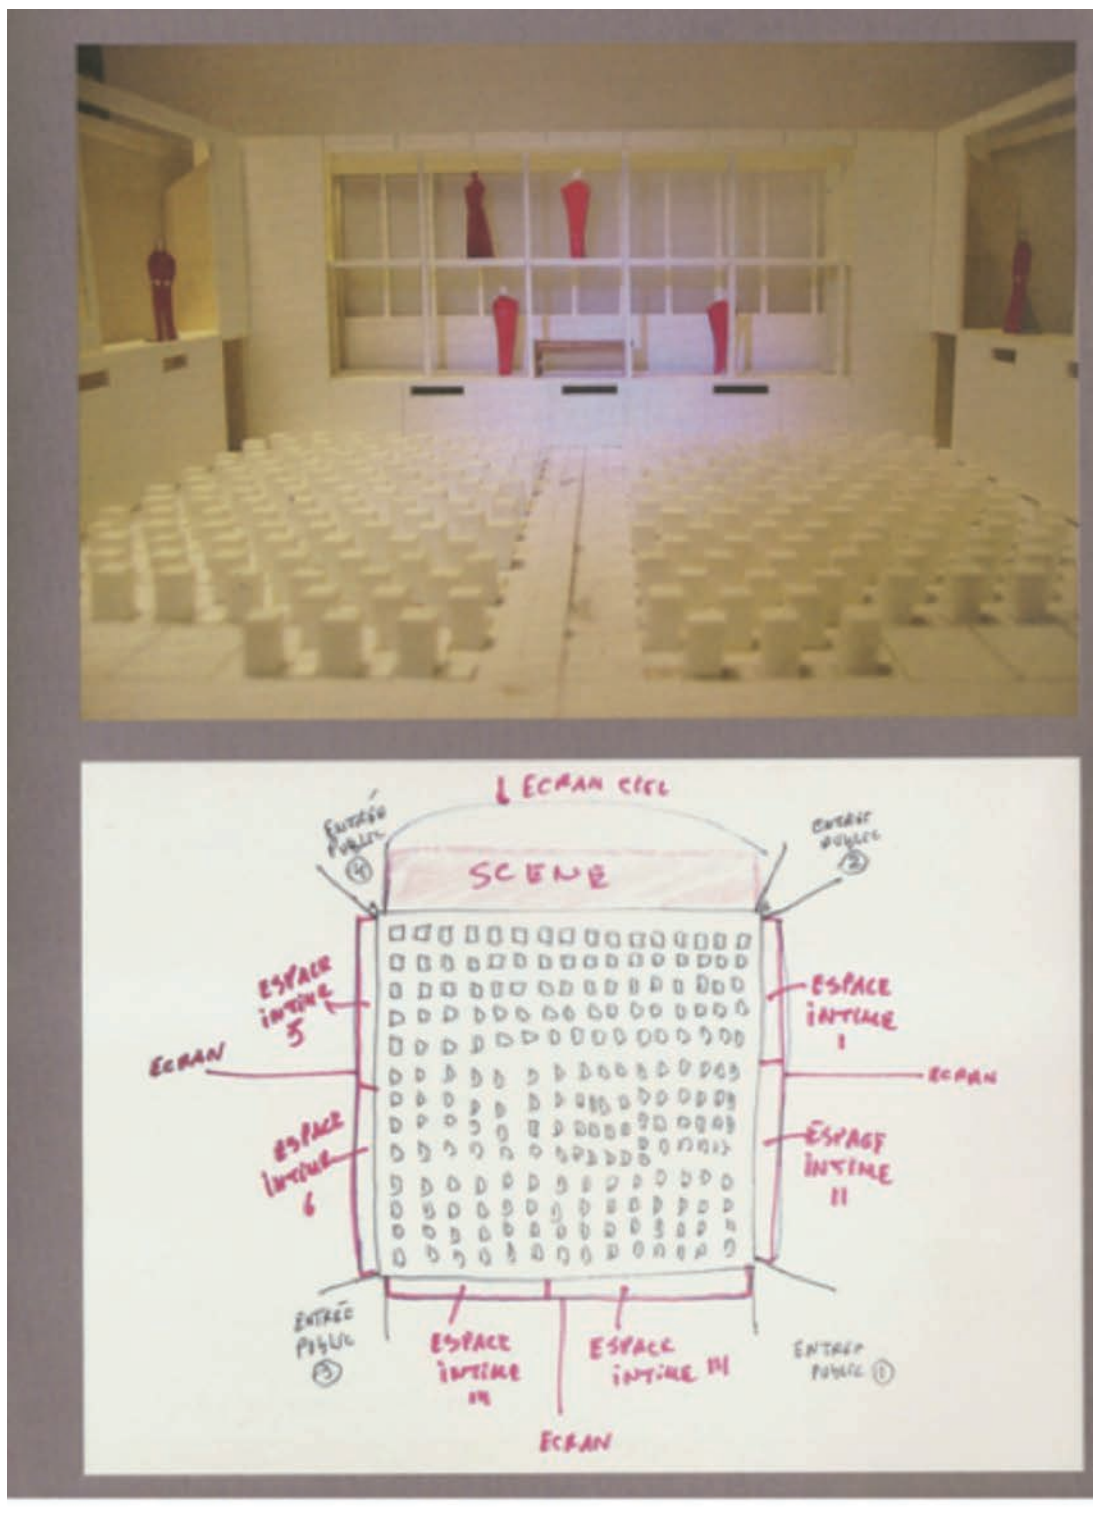 ECRAN CIEL
ENTRÉE
PUBLIC
4
ENTREE
PUBLIC
2
SCENE
ESPACE
INTIME
5
ESPACE
INTIME
I
ECRAN
ECRAN
ESPACE
INTIME
6
ESPACE
INTIME
II
ENTRÉE
PUBLIC
3
ESPACE
INTIME
ESPACE
INTIME
ENTREE
PUBLIC 1
ECRAN